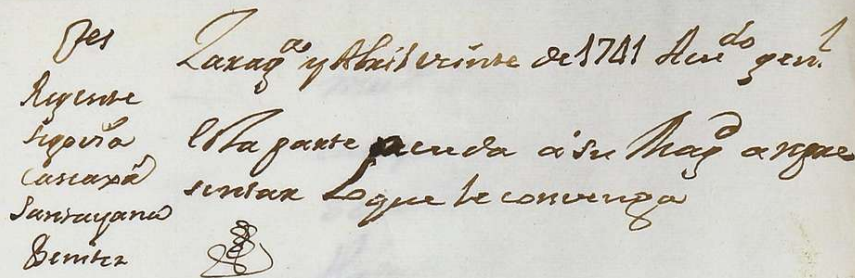 Ses
Regente
Segovia
Carcaxa
Santayana
Benitez
Zarag.ª y Abril veinte de 1741 Acu.do gen.l
Esta parte acuda a su Mag.d a repre
sentar Lo que le convenga